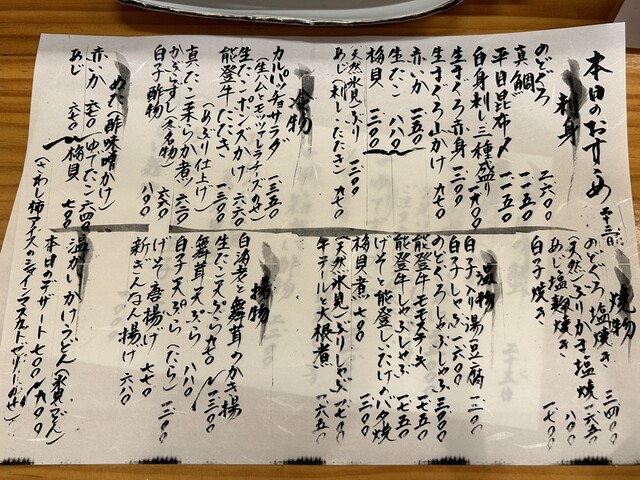 本日のおすすめ
刺身
のどぐろ 二六〇〇
真鯛 一一五〇
平目昆布〆 一一五〇
白身刺し三種盛り
生まぐろ赤身
生まぐろ山かけ 九七〇
赤いか 一一五〇
生だこ 八八〇
梅貝 一二〇〇
(天然氷見)ぶり 一二〇〇
あじ刺し(たたき) 九七〇
冷物
カルパッチョサラダ 一三五〇
(生ハムモッツァレラチーズのせ)
生だこポンズかけ
能登牛たたき
(あぶり仕上げ)
真だこ柔らか煮
かぶらずし(冬名物)
白子酢物 八八〇
ぬた(酢味噌かけ)
赤いか 六七〇 ゆでだこ 六四〇
あじ 六七〇 梅貝 七〇〇
焼物
のどぐろ塩焼き 三四〇〇
(天然)ぶりかま塩焼 一六五〇
あじ塩麹焼き 八八〇
白子焼き 一七〇〇
温物
白子入り湯豆腐 一二〇〇
白子しゃぶ 一六〇〇
のどぐろしゃぶしゃぶ 三〇〇〇
能登牛モモステーキ 一七五〇
能登牛しゃぶしゃぶ 一七五〇
げそと能登しいたけバタ焼 一二〇〇
梅貝煮 七〇〇
(天然氷見)ぶりしゃぶ 一七〇〇
牛テールと大根煮 一六五〇
揚物
白海老と舞茸のかき揚 一三〇〇
生だこ天ぷら 九七〇
舞茸天ぷら 八八〇
白子天ぷら(たら) 一二〇〇
げそ唐揚げ 七七〇
新ぎんなん揚げ 六八〇
温かいかけうどん(氷見うどん) 九〇〇
本日のデザート 七〇〇
(さわし柿アイスのシャインマスカットゼリーのせ)